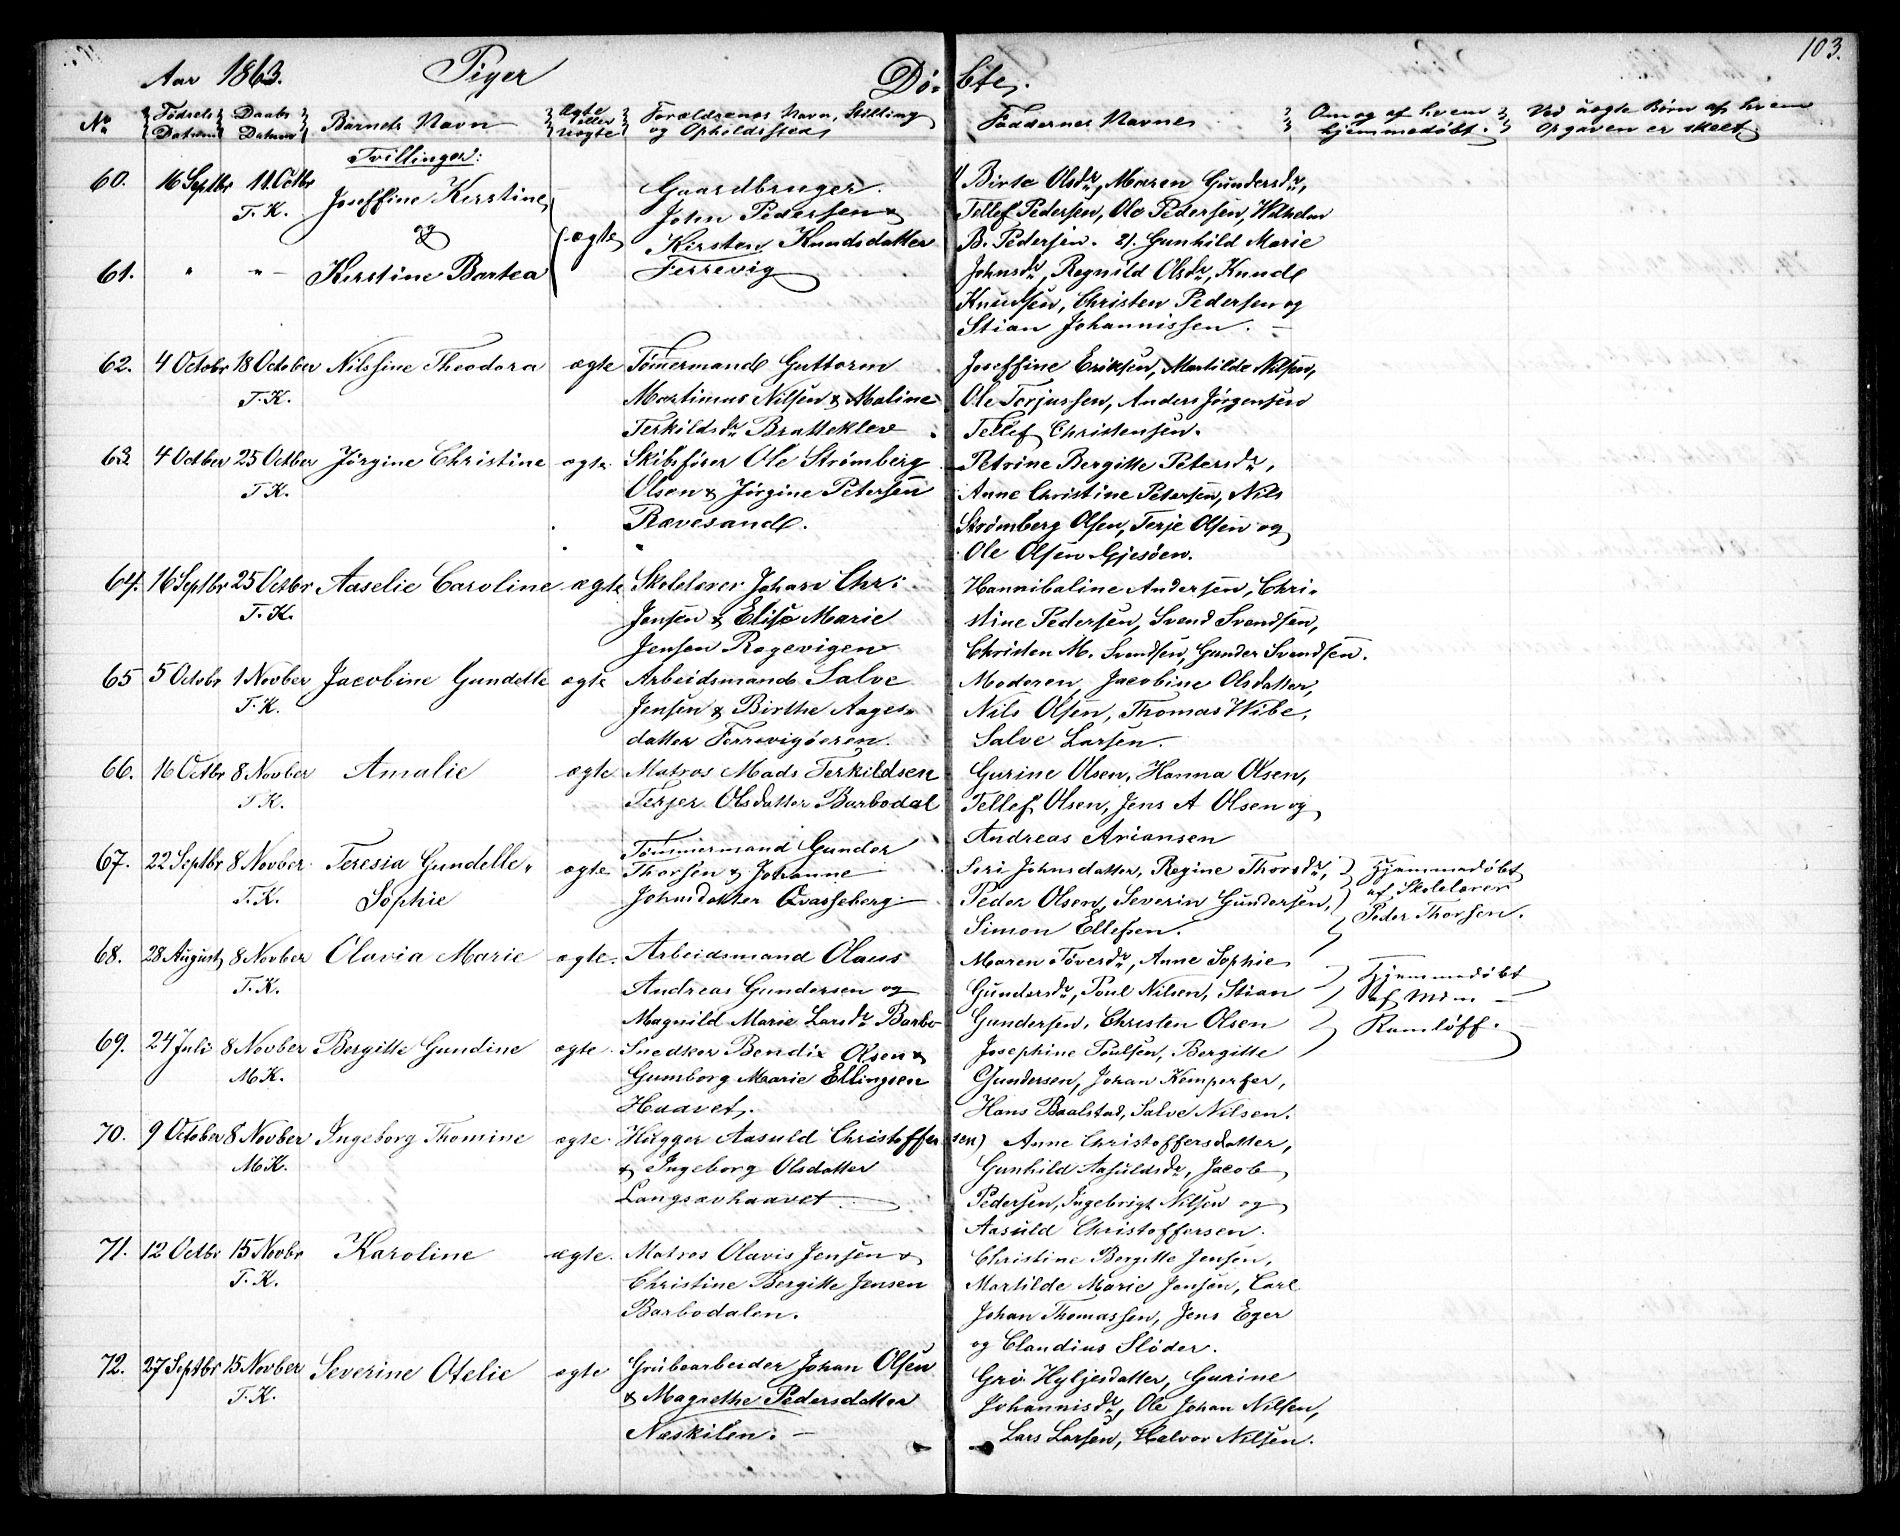 103.
Aar 1863. Piger Dö- bte.
No Fødsels Datum Daabs Datum Barnets Navn Ægte eller uægte Forældrenes Navn, Stilling og Opholdssted Faddernes Navne Om og af hvem hjemmedøbt. Ved uægte Børn af hvem Opgaven er skeet
Tvillinger:
60. 16 Septbr 11 Octbr Joseffine Kirstine, Gaardbruger 1) Birte Olsdr, Maren Gundersdr,
T. K. og ægte John Pedersen & Tellef Pedersen, Ole Pedersen, Wilhelm
Kirsten Knudsdatter B. Pedersen. 2). Gunhild Marie
61. " " — Kirstine Bartea Ferrevig Johnsdr, Regnild Olsdr, Knud
Knudsen, Christen Pedersen og
Stian Johannissen. —
62. 4 Octobr 18 October Nilsine Theodora ægte Tömermand Guttorm Joseffine Eriksen, Martilde Nilsen,
T. K. Martinus Nilsen & Maline Ole Torjussen, Anders Jörgensen
Terkildsdr Bratteklev. Tellef Christensen.
63. 4 Octber 25 Octber Jörgine Christine ægte. Skibsförer Ole Strömberg Petrine Bergitte Petersdr,
T K. Olsen & Jörgine Petersen Anne Christine Petersen, Nils
Rævesand. Strömberg Olsen, Terje Olsen og
Ole Olsen Gjesöen.
64. 16 Septbr 25 Octbr Aaselie Caroline ægte Skolelærer Johan Chr: Hannibaline Andersen, Chri-
T. K. Jensen & Elise Marie stine Pedersen, Svend Svendsen,
Jensen Rægevigen Christen M. Svendsen, Gunder Svendsen.
65 5 Octobr 1 Novber Jacobine Gundelle ægte Arbeidsmand Salve Moderen, Jacobine Olsdatter,
T. K. Jensen & Birthe Aages- Nils Olsen, Thomas Wibe,
datter Ferrevigöeren. Salve Larsen.
66. 16 Octbr 8 Novber Amalie ægte Matros Mads Terkildsen Gurine Olsen, Hanna Olsen,
T K. Terjer Olsdatter Barbodal Tellef Olsen, Jens A Olsen og
Andreas Ariansen
67. 22 Septbr 8 Novber Teresia Gundelle- ægte Tömmermand Gunder Seri Johnsdatter, Regine Thorsdr, Hjemmedöbt
T. K. Sophie Thorsen & Johanne Peder Olsen, Severin Gundersen, af Skolelærer
Johnsdatter Qvasseberg. Simon Ellefsen. Peder Thorsen.
68. 28 August 8 Novber Olavia Marie ægte. Arbeidsmand Olaus Maren Töversdr, Anne Sophie Hjemmedöbt
T. K. Andreas Gundersen og Gundersdr, Poul Nilsen, Stian af Mdm —
Magnild Marie Larsdr Barbo Gundersen, Christen Olsen Ramlöff. —
69. 24 Juli 8 Novber Bergitte Gundine ægte. Snedker Bendix Olsen & Josephine Poulsen, Bergitte
M K. Gumborg Marie Ellingsen Gundersen, Johan Kemperfer,
Haavet. Hans Baalstad, Salve Nilsen.
70. 9 October 8 Novber Ingeborg Thomine ægte. Hugger Aasuld Christoffersen) Anne Christoffersdatter,
M K. & Ingeborg Olsdatter Gunhild Aasuldsdr, Jacob
Langsævhaavet Pedersen, Ingebrigt Nilsen og
Aasuld Christoffersen.
71. 12 Octbr 15 Novbr Karoline ægte. Matros Olavis Jensen & Christine Bergitte Jensen,
T. K. Christine Bergitte Jensen Martilde Marie Jensen, Carl
Barbodalen. Johan Thomassen, Jens Eger
og Claudius Slöder.
72. 27 Septbr 15 Novber Severine Otelie ægte Grubearbeider Johan Olsen Gro Hyljesdatter, Gurine
T. K. & Magrethe Pedersdatter Johannisdr, Ole Johan Nilsen,
Næskilen. — Lars Larsen, Halvor Nilsen.